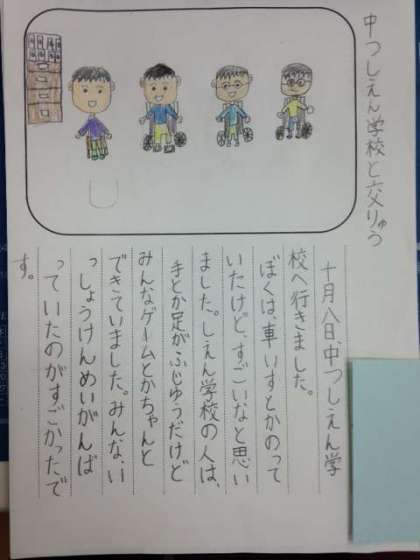 中つしえん学校と交りゅう
十月八日、中つしえん学
校へ行きました。
ぼくは、車いすとかのって
いたけど、すごいなと思い
ました。しえん学校の人は、
手とか足がふじゅうだけど
みんなゲームとかちゃんと
できていました。みんな、い
っしょうけんめいがんば
っていたのがすごかったで
す。